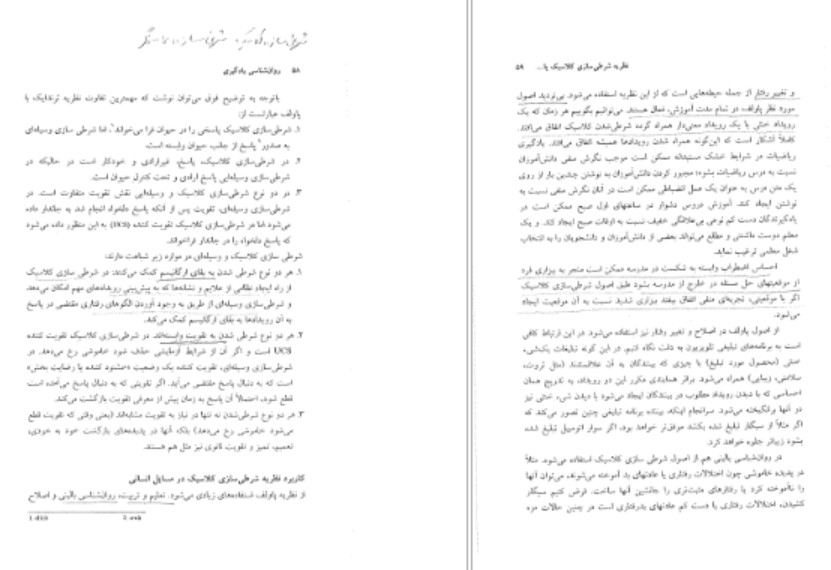 شرطی‌سازی کلاسیک و شرطی‌سازی
۵۸ روان‌شناسی یادگیری
باتوجه به توضیح فوق می‌توان نوشت که مهمترین تفاوت نظریه ثرندایک با
پاولف عبارتست از:
۱. شرطی‌سازی کلاسیک پاسخی را در حیوان فرا می‌خواند۱، اما شرطی سازی وسیله‌ای
به صدور۲ پاسخ از جانب حیوان وابسته است.
۲. در شرطی‌سازی کلاسیک، پاسخ، غیرارادی و خودکار است در حالیکه در
شرطی‌سازی وسیله‌ایی پاسخ ارادی و تحت کنترل حیوان است.
۳. در دو نوع شرطی‌سازی کلاسیک و وسیله‌ایی نقش تقویت متفاوت است. در
شرطی‌سازی وسیله‌ای، تقویت پس از آنکه پاسخ دلخواه انجام شد به جاندار داده
می‌شود اما در شرطی‌سازی کلاسیک تقویت کننده (UCS) به این منظور داده می‌شود
که پاسخ دلخواه را در جاندار فراخواند.
شرطی سازی کلاسیک و وسیله‌ای در موارد زیر شباهت دارند:
۱. هر دو نوع شرطی شدن به بقای ارگانیسم کمک می‌کنند: در شرطی سازی کلاسیک
از راه ایجاد نظامی از علایم و نشانه‌ها که به پیش‌بینی رویدادهای مهم امکان می‌دهد
و شرطی سازی وسیله‌ای از طریق به وجود آوردن الگوهای رفتاری مقتضی در پاسخ
به آن رویدادها به بقای ارگانیسم کمک می‌کند.
۲. هر دو نوع شرطی شدن به تقویت وابسته‌اند. در شرطی‌سازی کلاسیک تقویت کننده
UCS است و اگر آن از شرایط آزمایشی حذف شود خاموشی رخ می‌دهد. در
شرطی‌سازی وسیله‌ای، تقویت کننده یک وضعیت «خشنود کننده یا رضایت بخش»
است که به دنبال پاسخ مقتضی می‌آید. اگر تقویتی که به دنبال پاسخ می‌آمده است
قطع شود، احتمالاً آن پاسخ به زمان پیش از معرفی تقویت بازگشت می‌کند.
۳. هر دو نوع شرطی‌شدن نه تنها در نیاز به تقویت مشابه‌اند (یعنی وقتی که تقویت قطع
می‌شود خاموشی رخ می‌دهد) بلکه آنها در پدیده‌های بازگشت خود به خودی،
تعمیم، تمیز و تقویت ثانوی نیز مثل هم هستند.
کاربرد نظریه شرطی‌سازی کلاسیک در مسایل انسانی
از نظریه پاولف استفاده‌های زیادی می‌شود. تعلیم و تربیت، روان‌شناسی بالینی و اصلاح
1. elicit 2. emit
نظریه شرطی‌سازی کلاسیک یا... ۵۹
و تغییر رفتار از جمله حیطه‌هایی است که از این نظریه استفاده می‌شود. بی‌تردید اصول
مورد نظر پاولف در تمام مدت آموزش، فعال هستند. می‌توانیم بگوییم هر زمان که یک
رویداد خنثی با یک رویداد معنی‌دار همراه گردد شرطی‌شدن کلاسیک اتفاق می‌افتد.
کاملاً آشکار است که این‌گونه همراه شدن رویدادها همیشه اتفاق می‌افتد. یادگیری
ریاضیات در شرایط خشک مستبدانه ممکن است موجب نگرش منفی دانش‌آموزان
نسبت به درس ریاضیات بشود؛ مجبور کردن دانش‌آموزان به نوشتن چندین بار از روی
یک متن درس به عنوان یک عمل انضباطی ممکن است در آنان نگرش منفی نسبت به
نوشتن ایجاد کند. آموزش دروس دشوار در ساعتهای اول صبح ممکن است در
یادگیرندگان دست کم نوعی بی‌علاقگی خفیف نسبت به اوقات صبح ایجاد کند. و یک
معلم دوست داشتنی و مطلع می‌تواند بعضی از دانش‌آموزان و دانشجویان را به انتخاب
شغل معلمی ترغیب نماید.
احساس اضطراب وابسته به شکست در مدرسه ممکن است منجر به بیزاری فرد
از موقعیتهای حل مسئله در خارج از مدرسه بشود طبق اصول شرطی‌سازی کلاسیک
اگر با موقعیتی، تجربه‌ای منفی اتفاق بیفتد بیزاری شدید نسبت به آن موقعیت ایجاد
می‌شود.
از اصول پاولف در اصلاح و تغییر رفتار نیز استفاده می‌شود. در این ارتباط کافی
است به برنامه‌های تبلیغی تلویزیون به دقت نگاه کنیم. در این گونه تبلیغات یک‌شیء
خنثی (محصول مورد تبلیغ) با چیزی که بینندگان به آن علاقمندند (مثل ثروت،
سلامتی، زیبایی) همراه می‌شود. براثر همایندی مکرر این دو رویداد، به تدریج همان
احساسی که با دیدن رویداد مطلوب در بینندگان ایجاد می‌شود با دیدن شیء خنثی نیز
در آنها برانگیخته می‌شود. سرانجام اینکه، بیننده برنامه تبلیغی چنین تصور می‌کند که
اگر مثلاً از سیگار تبلیغ شده بکشد موفق‌تر خواهد بود، اگر سوار اتومبیل تبلیغ شده
بشود زیباتر جلوه خواهد کرد.
در روان‌شناسی بالینی هم از اصول شرطی سازی کلاسیک استفاده می‌شود. مثلاً
در پدیده خاموشی چون اختلالات رفتاری یا عادتهای بد آموخته می‌شوند، می‌توان آنها
را ناآموخته کرد یا رفتارهای مثبت‌تری را جانشین آنها ساخت. فرض کنیم سیگار
کشیدن، اختلالات رفتاری یا دست کم عادتهای بدرفتاری است در چنین حالات مزه